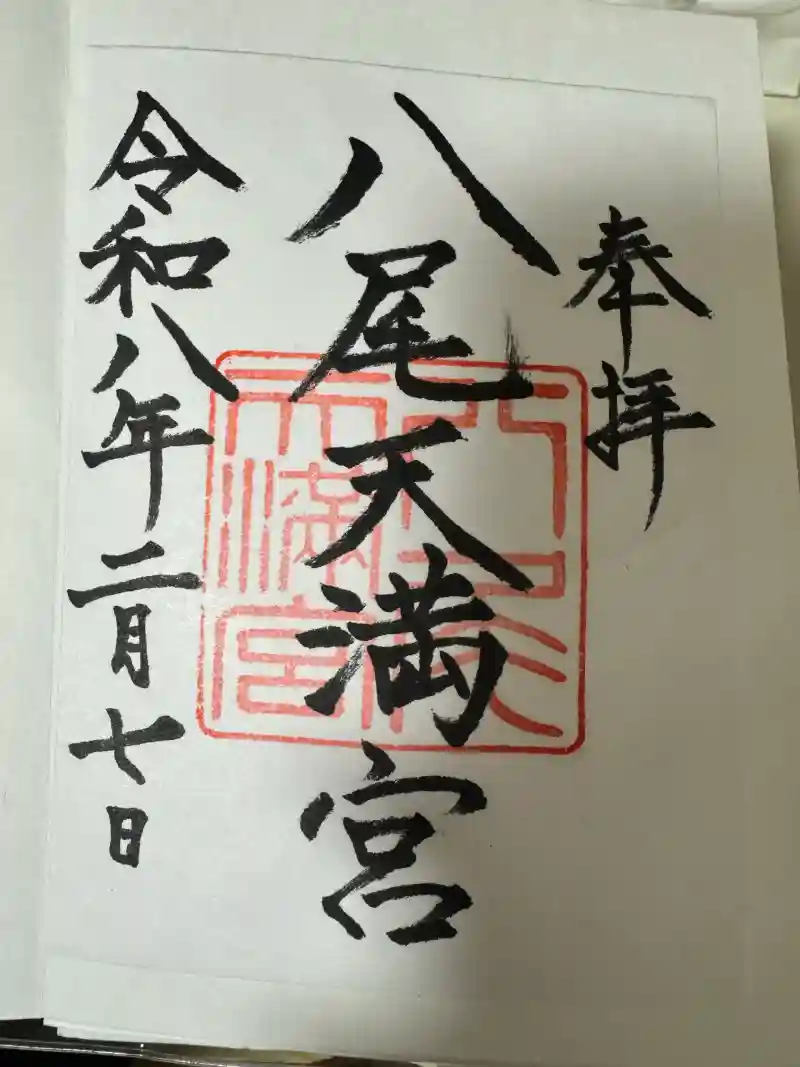 奉拝
八尾天満宮
令和八年二月七日
八尾
天満宮